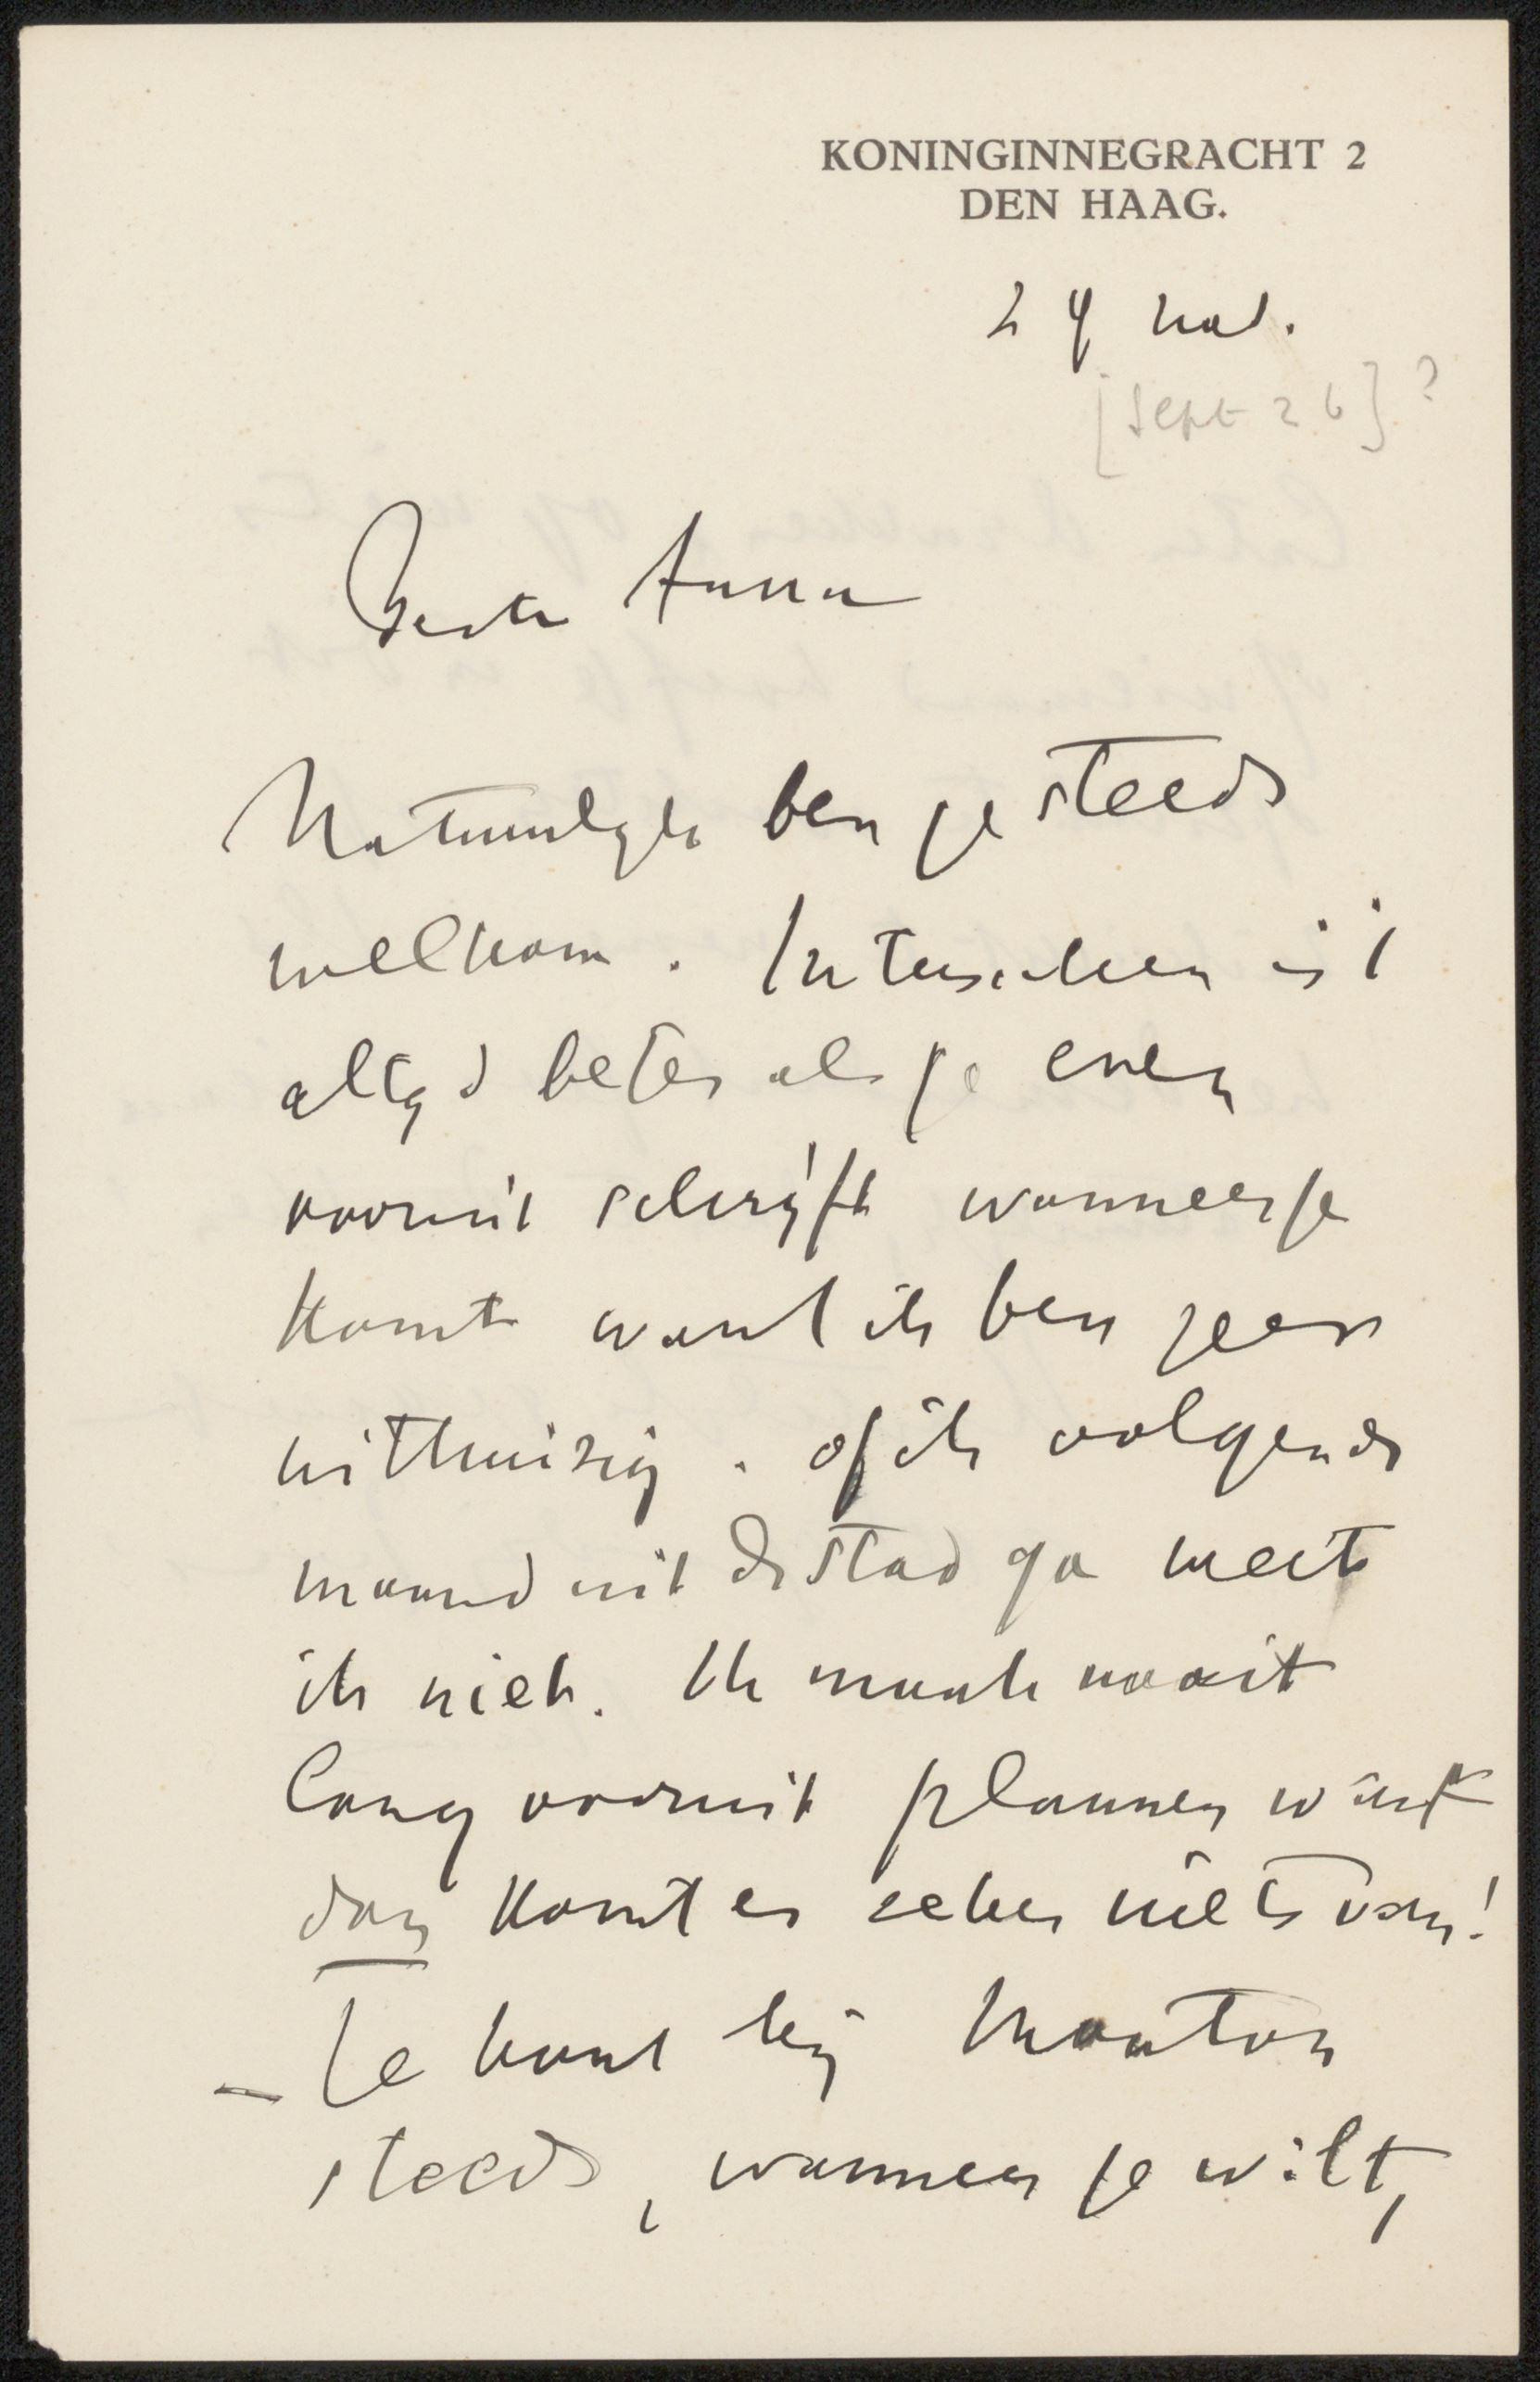 KONINGINNEGRACHT 2
DEN HAAG.
24 nov.
[Sept 26] ?
Beste Anna
Natuurlyk ben je steeds
welkom. Intusschen is 't
altyd beter als je even
vooruit schrijft wanneer je
komt want ik ben zeer
uithuizig. Of ik volgende
maand uit de stad ga weet
ik niet. Ik maak nooit
lang vooruit plannen want
dan komt er zeker niets van!
– Je kunt bij Mouton
steeds, wanneer je wilt,